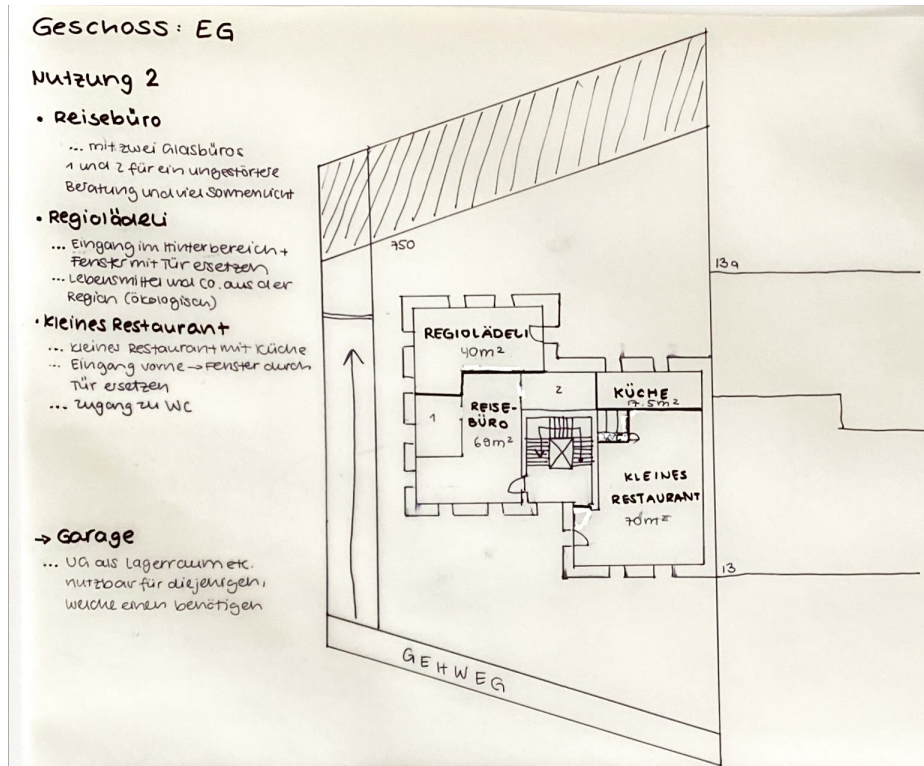 Geschoss: EG
Nutzung 2
• Reisebüro
... mit zwei Glasbüros
1 und 2 für ein ungestörtere
Beratung und viel Sonnenlicht
• Regiolädeli
... Eingang im Hinterbereich +
Fenster mit Tür ersetzen
... Lebensmittel und co. aus der
Region (ökologisch)
• kleines Restaurant
... kleines Restaurant mit Küche
... Eingang vorne → Fenster durch
Tür ersetzen
... Zugang zu WC
→ Garage
... UG als Lagerraum etc.
nutzbar für diejenigen,
welche einen benötigen
750
13a
REGIOLÄDELI
40m²
2
KÜCHE
17.5m²
1
REISE-
BÜRO
69m²
WC
KLEINES
RESTAURANT
70m²
13
GEHWEG